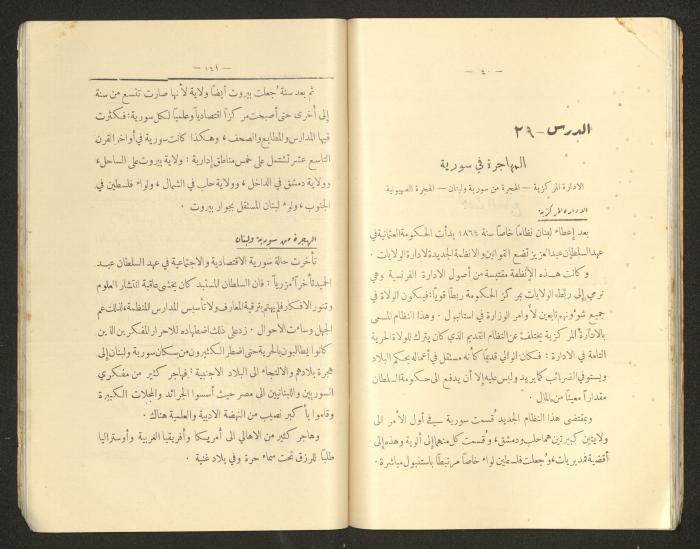 — ٤٠ —
الدرس — ٢٩
المهاجرة في سورية
الادارة المركزية — الهجرة من سورية ولبنان — الهجرة الصهيونية
الادارة المركزية
بعد إعطاء لبنان نظاماً خاصاً سنة ١٨٦٤ بدأت الحكومة العثمانية في
عهد السلطان عبد العزيز تضع القوانين والانظمة الجديدة لادارة الولايات .
وكانت هذه الأنظمة مقتبسة من أصول الادارة الفرنسية وهي
ترمي إلى ربط الولايات بمركز الحكومة ربطاً قوياً: فيكون الولاة في
جميع شؤونهم تابعين لأوامر الوزارة في استانبول . وهذا النظام المسمى
بالادارة المركزية يختلف عن النظام القديم الذي كان يترك للولاة الحرية
التامة في الادارة : فكان الوالي قديماً كأنه مستقل في أعماله يحكم البلاد
ويستوفي الضرائب كما يريد وليس عليه إلا أن يدفع الى حكومة السلطان
مقداراً معيناً من المال .
وبمقتضى هذا النظام الجديد قُسمت سورية في أول الأمر الى
ولايتين كبيرتين هما حلب ودمشق، وقسمت كل منها إلى ألوية وهذه إلى
أقضية فمديريات، وجُعلت فلسطين لواء خاصاً مرتبطاً باستنبول مباشرة .
— ١٤١ —
ثم بعد سنة جُعلت بيروت أيضاً ولاية لأنها صارت تتسع من سنة
إلى أخرى حتى أصبحت مركزاً اقتصادياً وعلمياً لكل سورية: فكثرت
فيها المدارس والمطابع والصحف، وهكذا كانت سورية في أواخر القرن
التاسع عشر تشتمل على خمس مناطق إدارية : ولاية بيروت على الساحل،
وولاية دمشق في الداخل، وولاية حلب في الشمال، ولواء فلسطين في
الجنوب، ولواء لبنان المستقل بجوار بيروت .
الهجرة من سورية ولبنان
تأخرت حالة سورية الاقتصادية والاجتماعية في عهد السلطان عبد
الحميد تأخراً مزرياً: فان السلطان المستبد كان يخشى عاقبة انتشار العلوم
وتنور الافكار فلم يهتم بترقية المعارف ولا تأسيس المدارس المنظمة، لذلك عم
الجهل وساءت الاحوال . زد على ذلك اضطهاده للاحرار المفكرين الذين
كانوا يطالبون بالحرية حتى اضطر الكثيرون من سكان سورية ولبنان إلى
هجرة بلادهم والالتجاء الى البلاد الاجنبية : فهاجر كثير من مفكري
السوريين واللبنانيين الى مصر حيث أسسوا الجرائد والمجلات الكبيرة
وقاموا بأكبر نصيب من النهضة الادبية والعلمية هناك .
وهاجر كثير من الاهالي الى أمريكا وأفريقيا الغربية وأوستراليا
طلباً للرزق تحت سماء حرة وفي بلاد غنية .